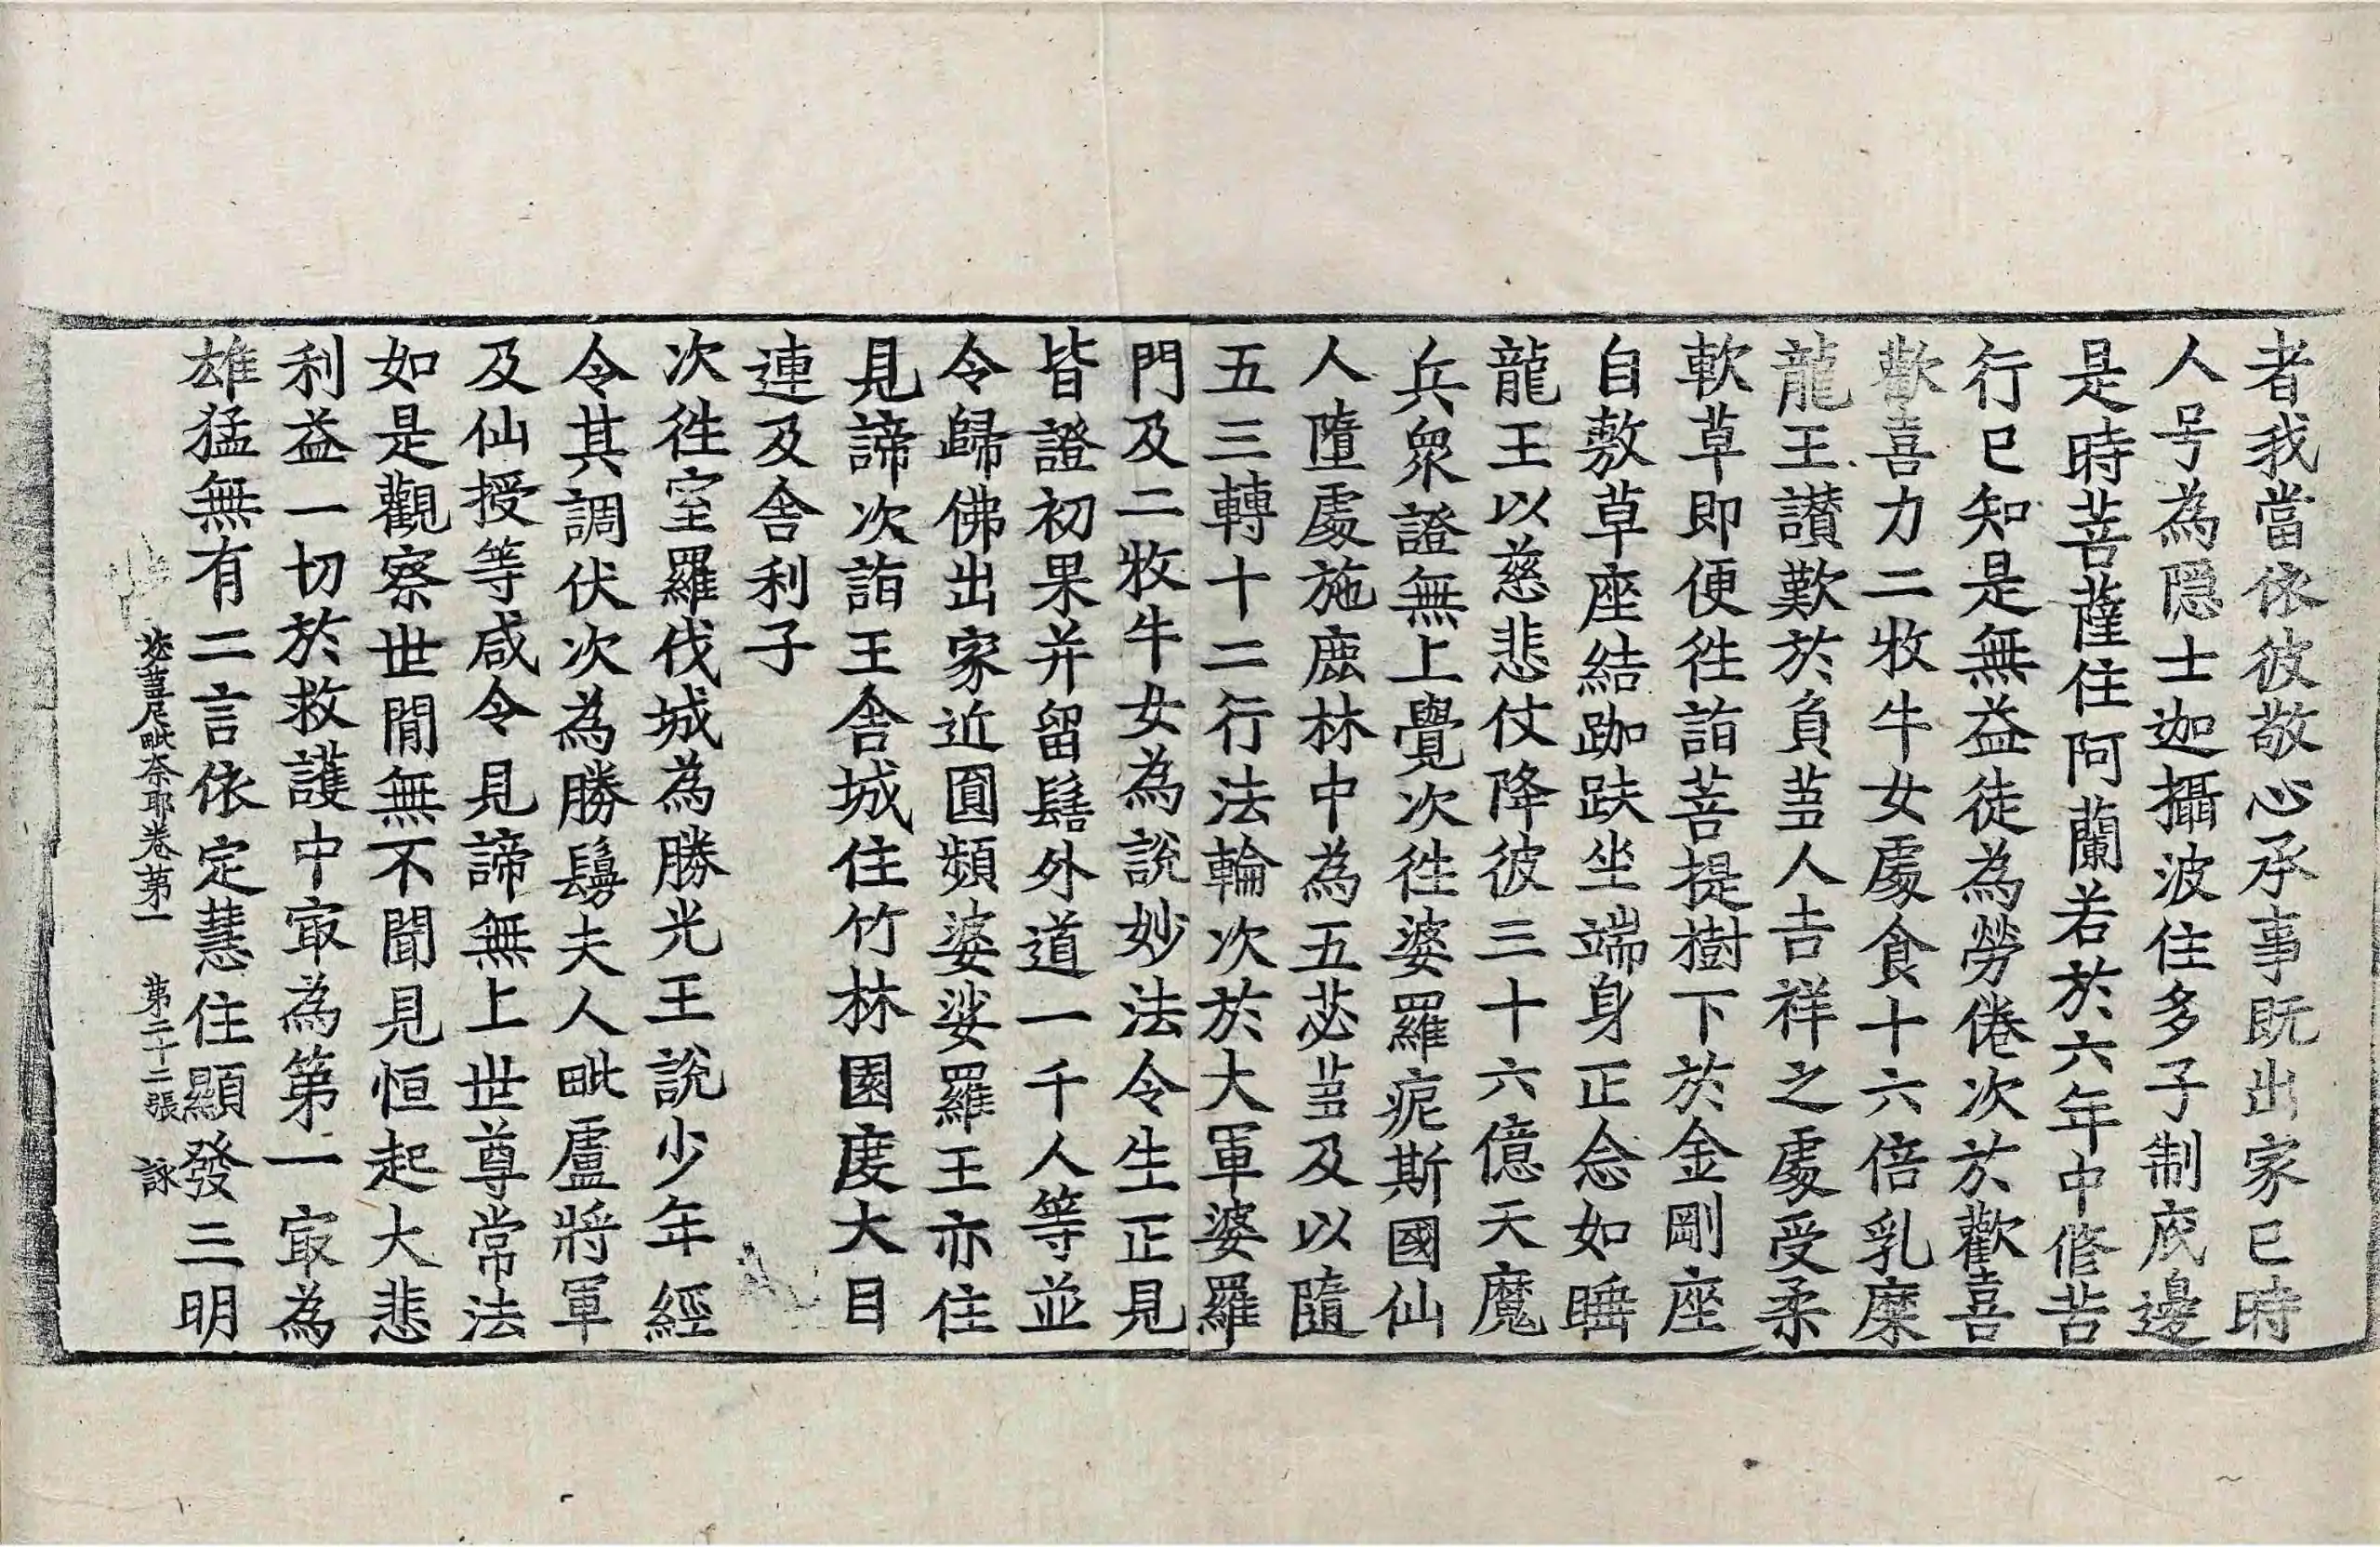 者我當依彼敬心承事既出家已時
人号為隱士迦攝波住多子制底邊
是時菩薩住阿蘭若於六年中修苦
行已知是無益徒為勞倦次於歡喜
歡喜力二牧牛女處食十六倍乳糜
龍王讃歎於負草人吉祥之處受柔
軟草即便往詣菩提樹下於金剛座
自敷草座結跏趺坐端身正念如睡
龍王以慈悲仗降彼三十六億天魔
兵衆證無上覺次往婆羅痆斯國仙
人墮處施鹿林中為五苾芻及以隨
五三轉十二行法輪次於大軍婆羅
門及二牧牛女為説妙法令生正見
皆證初果并留髻外道一千人等並
令歸佛出家近圓頻婆娑羅王亦住
見諦次詣王舎城住竹林園度大目
連及舎利子
次往室羅伐城為勝光王説少年經
令其調伏次為勝鬘夫人毗盧將軍
及仙授等咸令見諦無上世尊常法
如是觀察世閒無不聞見恒起大悲
利益一切於救護中冣為第一冣為
雄猛無有二言依定慧住顯發三明
苾蒭尼毗奈耶卷第一 第二十二張 詠